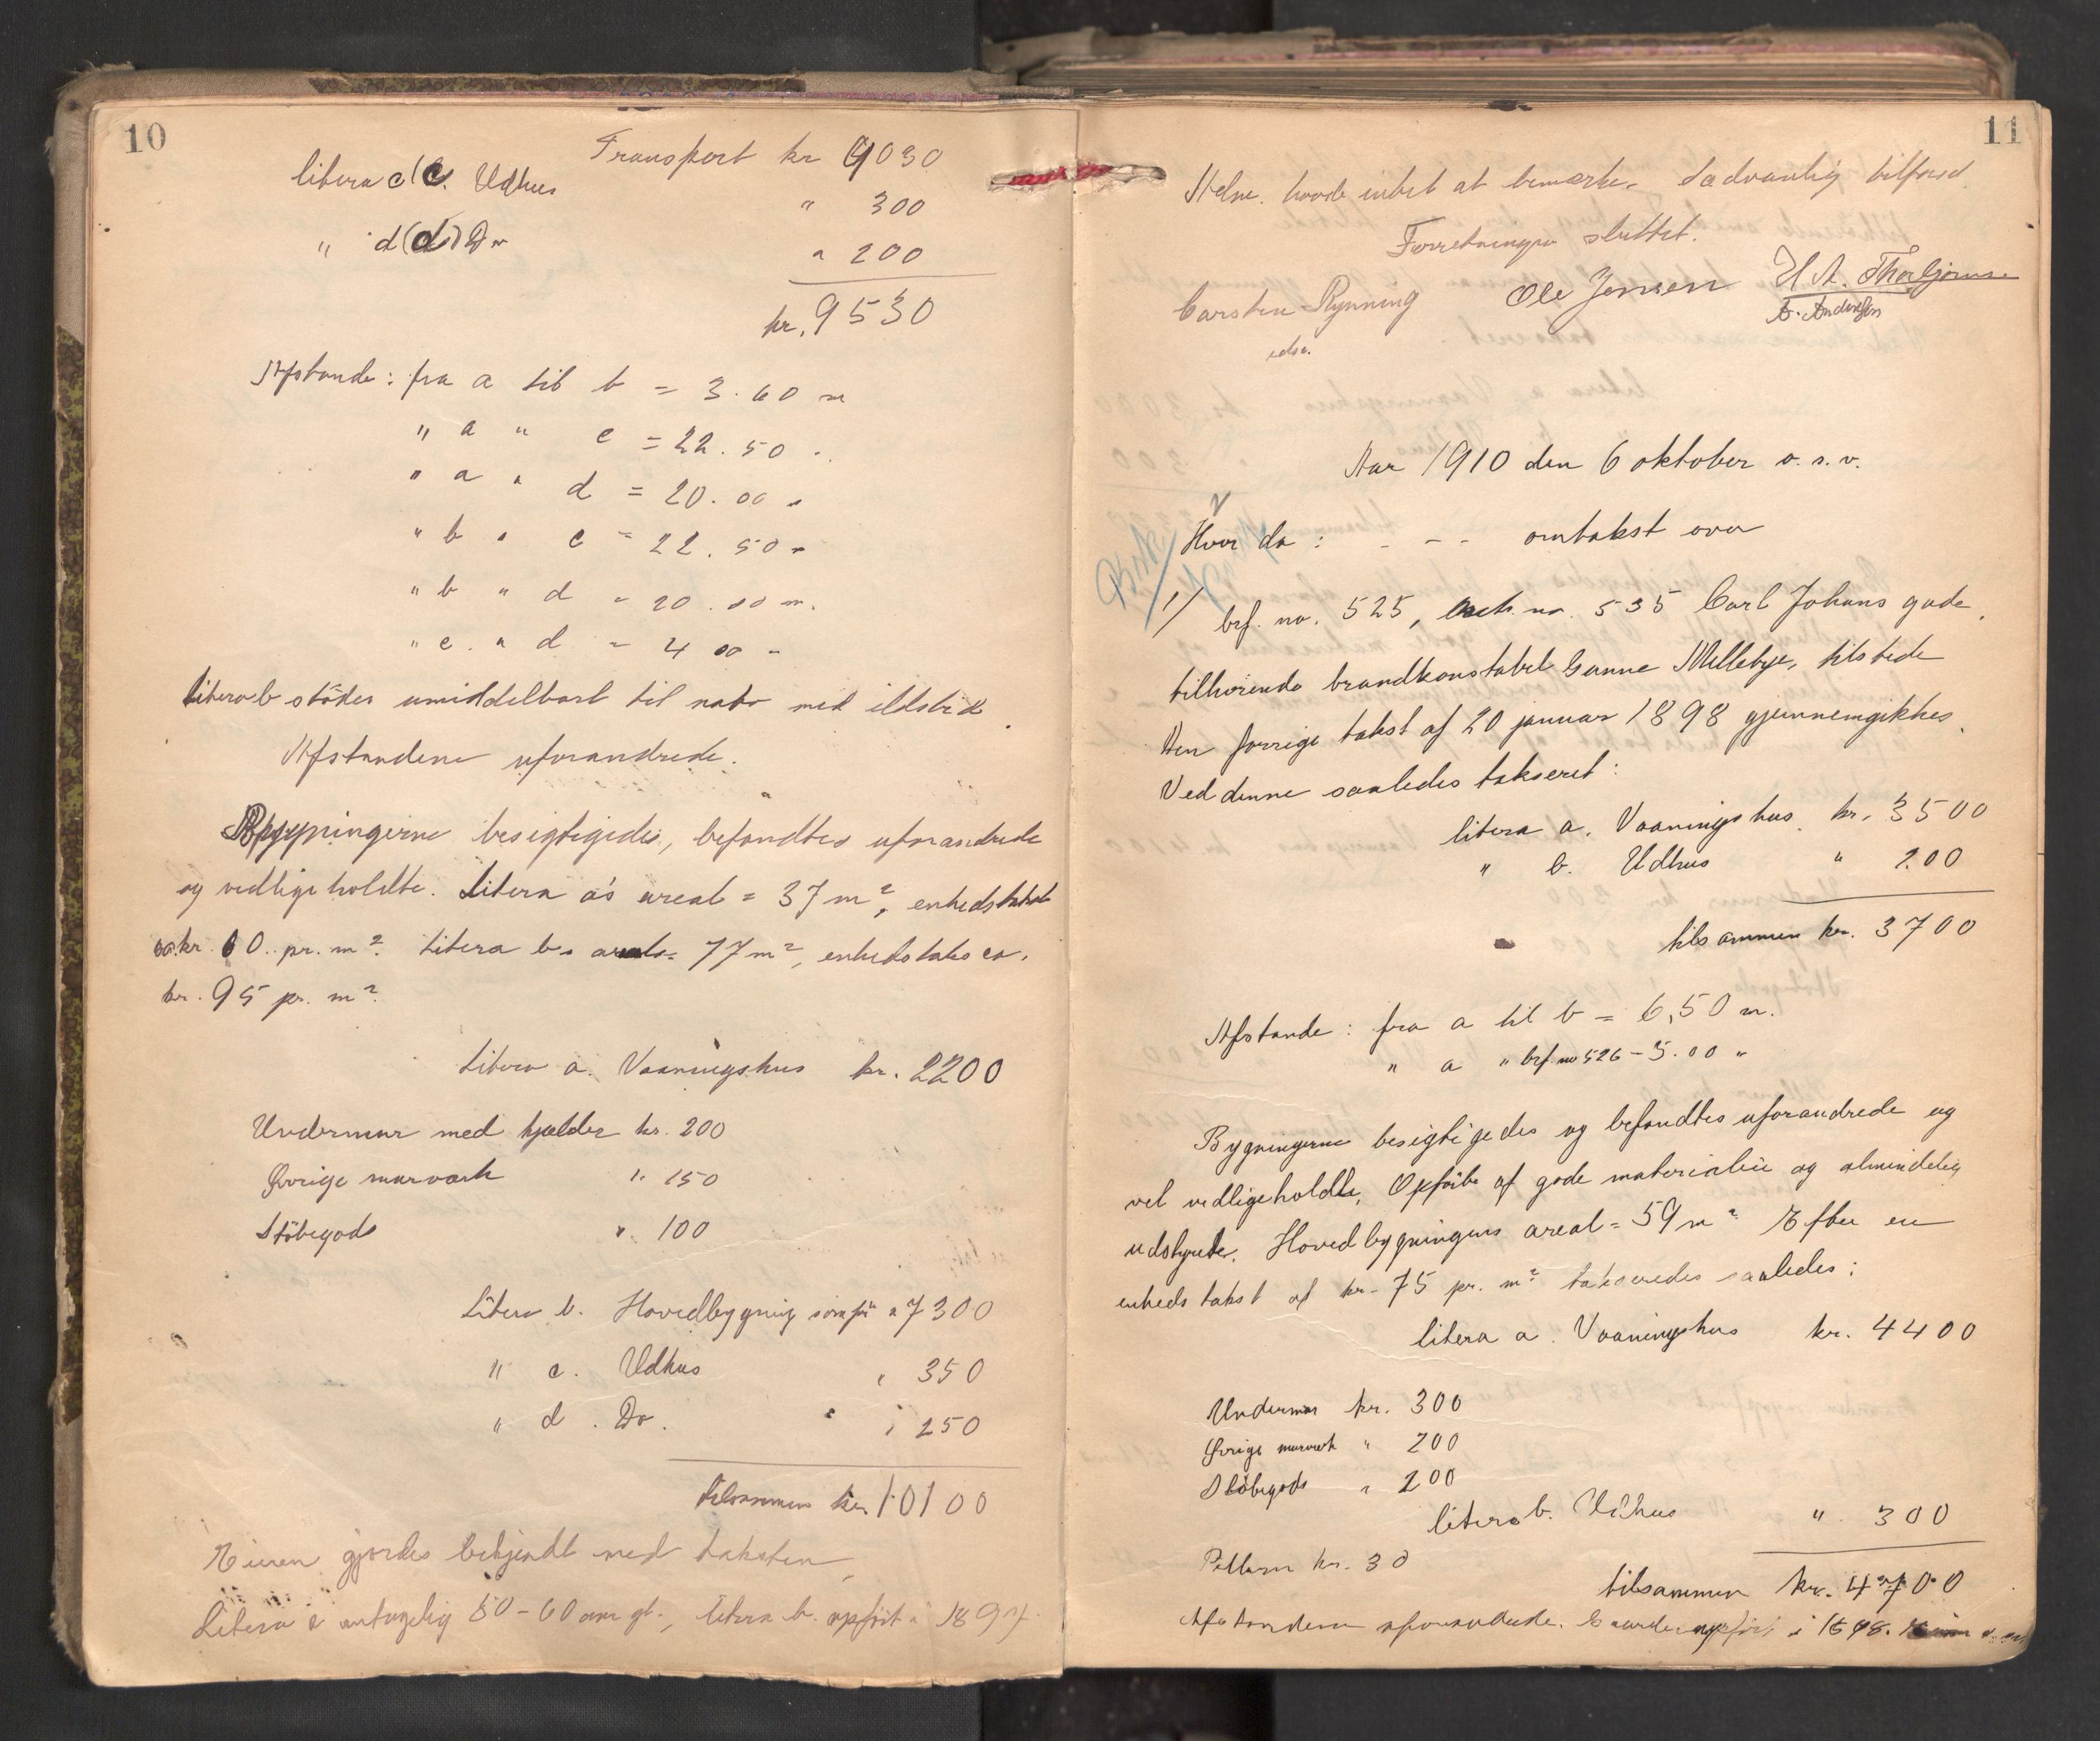 10
Transport kr 9030
litera c (c. Udhus " 300
" d (d) Do " 200
kr. 9530
Afstande: fra a til b = 3.60 m
" a " c = 22.50 "
" a " d = 20.00 "
" b " c = 22.50 "
" b " d = 20.00 m.
" c " d = 4 00 "
Litera b støder umiddelbart til nabo med ildsted.
Afstandene uforandrede.
Bygningerne besigtigedes, befandtes uforandrede
og vedligeholdte. Litera a's areal = 37 m², enhedstakst
ca. kr. 60 pr. m². Litera b's areal = 77 m², enhedstakst ca.
kr. 95 pr. m².
Litera a. Vaaningshus kr. 2200
Undermur med kjælder kr. 200
Øvrige murværk " 150
Støbegods " 100
Litera b. Hovedbygning som før " 7300
" c. Udhus " 350
" d. Do. " 250
tilsammen kr. 10100
Eieren gjordes bekjendt med taksten
Litera a antagelig 50-60 aar gl., litera b. opført i 1897.
11
Helne. havde intet at bemærke. Sædvanlig tilførsel
Forretningen sluttet.
Carsten Rynning Ole Jensen H A. Thorbjørnsen
edsv. A. Andersen
Aar 1910 den 6 oktober o. s. v.
Hvor da: - - - omtakst over
1/ brf. no. 525, mat. no. 535 Carl Johans gade,
tilhørende brandkonstabel Gunne Mellebye, tilstede
Den forrige takst af 20 januar 1898 gjennemgikkes.
Ved denne saaledes takseret:
litera a. Vaaningshus kr. 3500
" b. Udhus " 200
tilsammen kr. 3700
Afstande: fra a til b = 6,50 m.
" a " brf. no 526 - 5.00 "
Bygningerne besigtigedes og befandtes uforandrede og
vel vedligeholdte, Opført af gode materialier og almindelig
udstyrede. Hovedbygningens areal = 59 m² Efter en
enhedstakst af kr. 75 pr. m² takseredes saaledes:
litera a. Vaaningshus kr. 4400
Undermur kr. 300
Øvrige murværk " 200
Støbegods " 200
litera b. Udhus " 300
Pillarer kr. 30
tilsammen kr. 4700
Afstandene uforandrede. Gaarden opført i 1898.